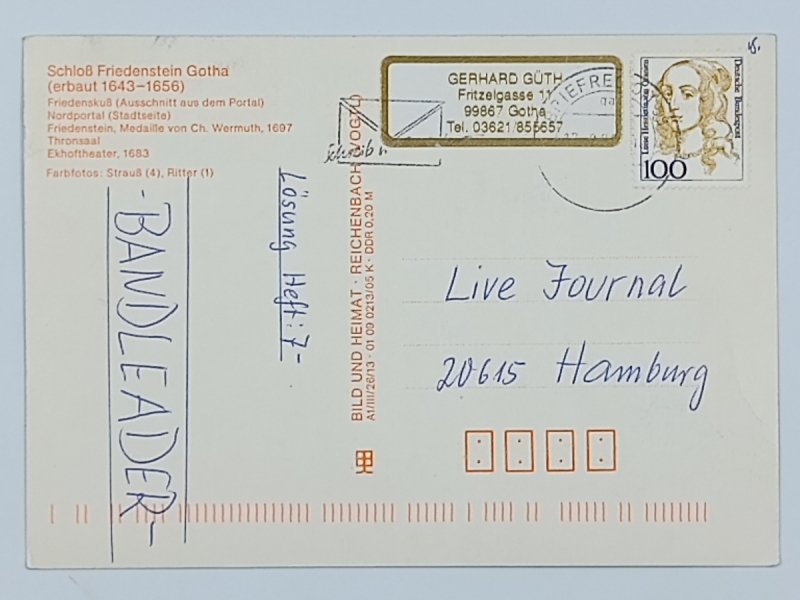 Schloß Friedenstein Gotha
(erbaut 1643–1656)
Friedenskuß (Ausschnitt aus dem Portal)
Nordportal (Stadtseite)
Friedenstein, Medaille von Ch. Wermuth, 1697
Thronsaal
Ekhoftheater, 1683
Farbfotos: Strauß (4), Ritter (1)
-BANDLEADER-
Lösung Heft: 7-
BILD UND HEIMAT · REICHENBACH (VOGTL)
A1/III/26/13 · 01 09 0213/05 K · DDR 0,20 M
GERHARD GÜTH
Fritzelgasse 11
99867 Gotha
Tel. 03621/855657
BRIEFRE
Deutsche Bundespost
100
Live Journal
20615 Hamburg